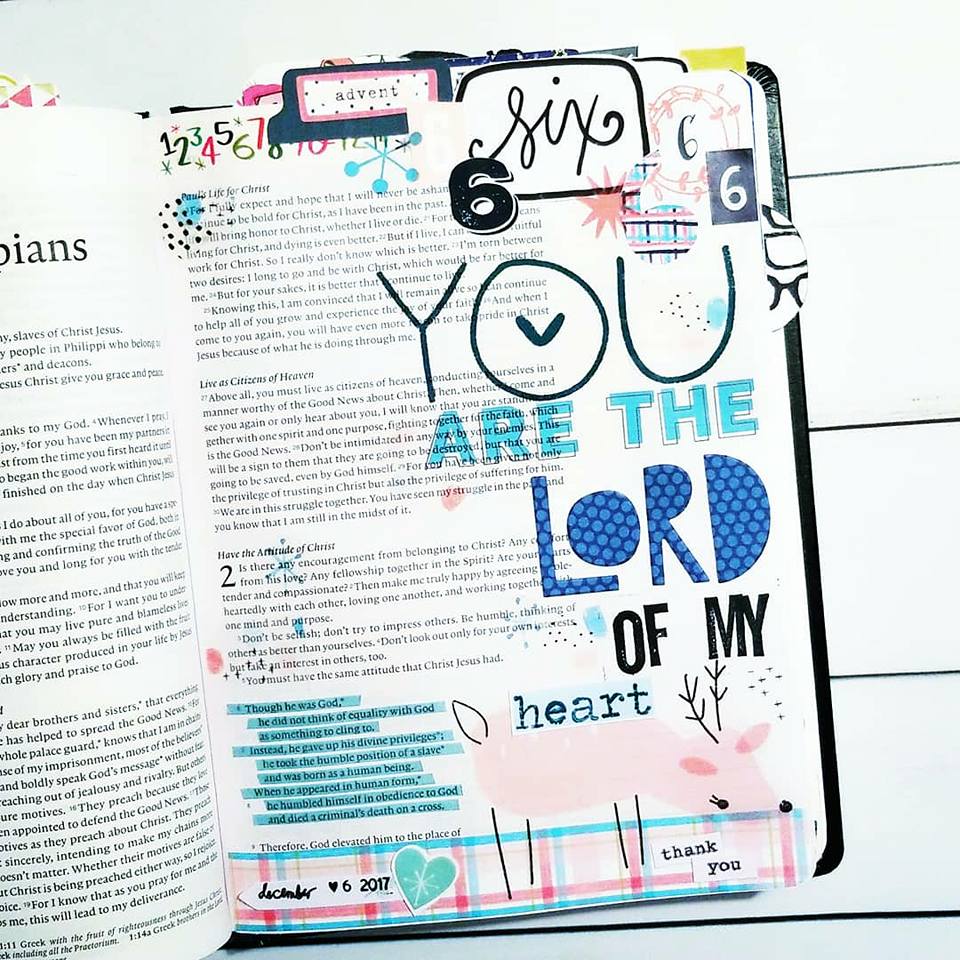 pians
ny, slaves of Christ Jesus.
y people in Philippi who belong to
ders* and deacons.
esus Christ give you grace and peace.
anks to my God. 4Whenever I pray,
joy, 5for you have been my partners in
st from the time you first heard it until
o began the good work within you, will
finished on the day when Christ Jesus
I do about all of you, for you have a spe-
with me the special favor of God, both in
ng and confirming the truth of the Good
ove you and long for you with the tender
ow more and more, and that you will keep
nderstanding. 10For I want you to under-
at you may live pure and blameless lives
11May you always be filled with the fruit
us character produced in your life by Jesus
ch glory and praise to God.
y dear brothers and sisters,* that everything
e has helped to spread the Good News. 13For
whole palace guard,* knows that I am in chains
se of my imprisonment, most of the believers*
and boldly speak God's message* without fear.
reaching out of jealousy and rivalry. But others
ure motives. 16They preach because they love
en appointed to defend the Good News. 17Those
otives as they preach about Christ. They preach
t sincerely, intending to make my chains more
oesn't matter. Whether their motives are false or
ut Christ is being preached either way, so I rejoice.
oice. 19For I know that as you pray for me and the
ps me, this will lead to my deliverance.
1:11 Greek with the fruit of righteousness through Jesus Christ.
eek including all the Praetorium. 1:14a Greek brothers in the Lord.
advent
1 2 3 4 5 6 7 8
six
6
6
6
Paul's Life for Christ
expect and hope that I will never be asham
nue to be bold for Christ, as I have been in the past.
will bring honor to Christ, whether I live or die. 21For
living for Christ, and dying is even better. 22But if I live, I can
work for Christ. So I really don't know which is better. 23I'm torn between
two desires: I long to go and be with Christ, which would be far better for
me. 24But for your sakes, it is better that I continue to live.
25Knowing this, I am convinced that I will remain alive so I can continue
to help all of you grow and experience the joy of your faith. 26And when I
come to you again, you will have even more reason to take pride in Christ
Jesus because of what he is doing through me.
Live as Citizens of Heaven
27Above all, you must live as citizens of heaven, conducting yourselves in a
manner worthy of the Good News about Christ. Then, whether I come and
see you again or only hear about you, I will know that you are standing
gether with one spirit and one purpose, fighting together for the faith, which
is the Good News. 28Don't be intimidated in any way by your enemies. This
will be a sign to them that they are going to be destroyed, but that you are
going to be saved, even by God himself. 29For you have been given not only
the privilege of trusting in Christ but also the privilege of suffering for him.
30We are in this struggle together. You have seen my struggle in the past, and
you know that I am still in the midst of it.
Have the Attitude of Christ
2 Is there any encouragement from belonging to Christ? Any comfort
from his love? Any fellowship together in the Spirit? Are your hearts
tender and compassionate? 2Then make me truly happy by agreeing whole-
heartedly with each other, loving one another, and working together with
one mind and purpose.
3Don't be selfish; don't try to impress others. Be humble, thinking of
others as better than yourselves. 4Don't look out only for your own interests,
but take an interest in others, too.
5You must have the same attitude that Christ Jesus had.
6 Though he was God,*
he did not think of equality with God
as something to cling to.
7 Instead, he gave up his divine privileges*;
he took the humble position of a slave*
and was born as a human being.
When he appeared in human form,*
8 he humbled himself in obedience to God
and died a criminal's death on a cross.
9 Therefore, God elevated him to the place of
YOU
ARE THE
LORD
OF MY
heart
thank
you
december ♥ 6 2017